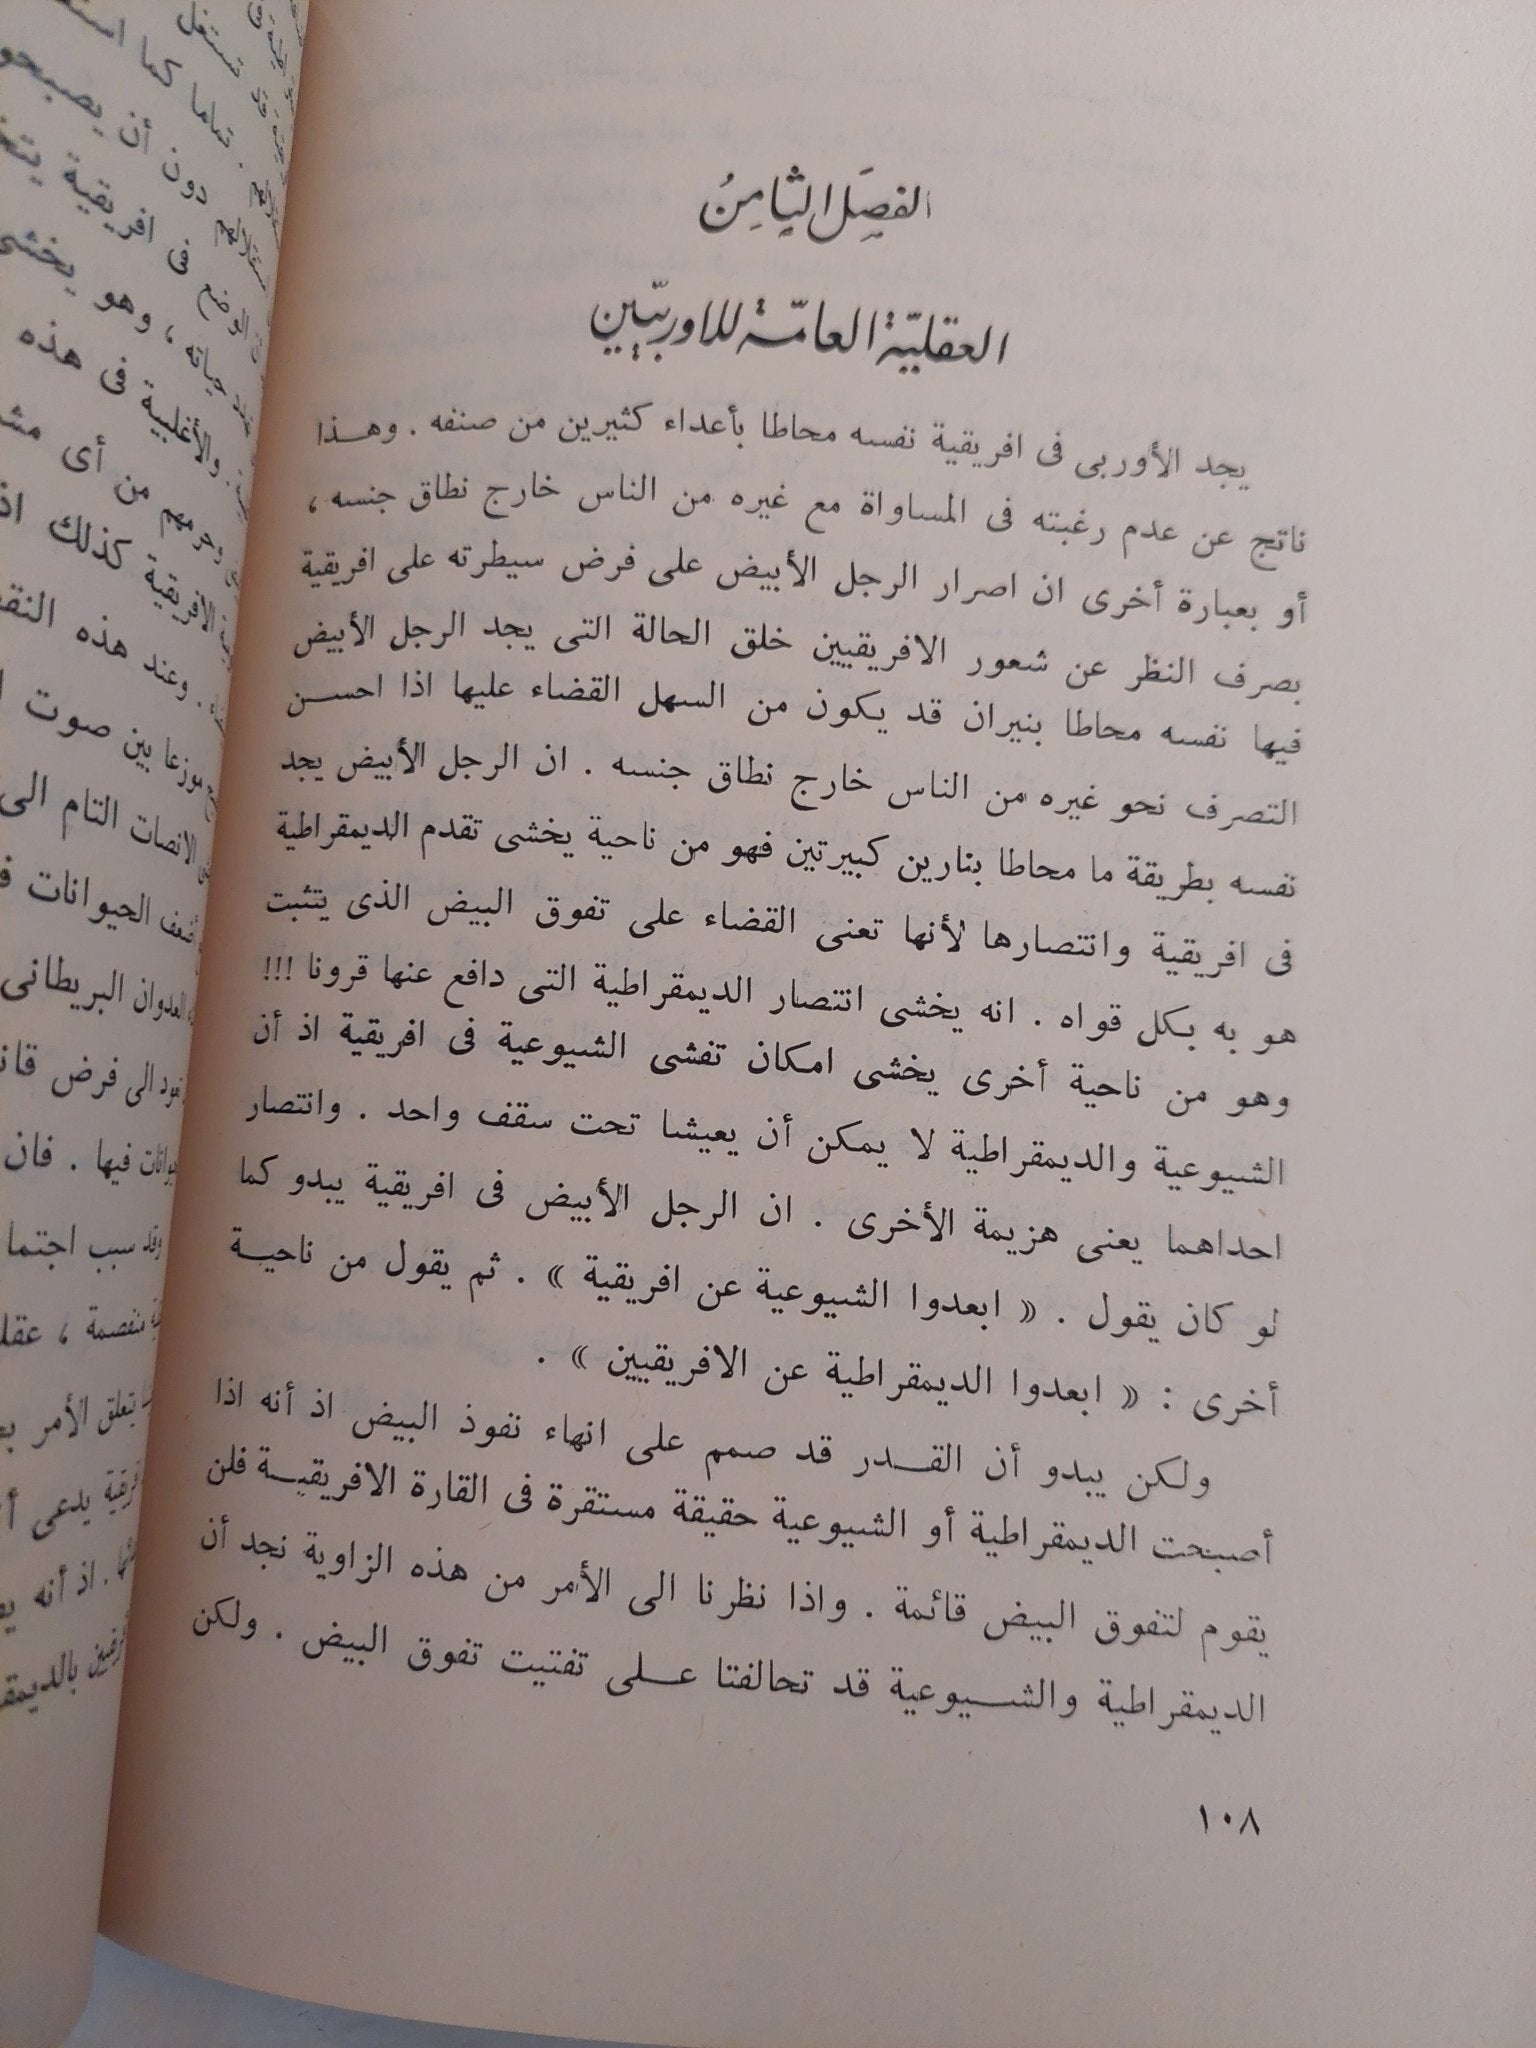 الفصل الثامن
العقلية العامة للاوربيين
يجد الأوربى فى افريقية نفسه محاطا بأعداء كثيرين من صنفه . وهـذا
ناتج عن عدم رغبته فى المساواة مع غيره من الناس خارج نطاق جنسه ،
أو بعبارة أخرى ان اصرار الرجل الأبيض على فرض سيطرته على افريقية
بصرف النظر عن شعور الافريقيين خلق الحالة التى يجد الرجل الأبيض
فيها نفسه محاطا بنيران قد يكون من السهل القضاء عليها اذا احسـن
التصرف نحو غيره من الناس خارج نطاق جنسه . ان الرجل الأبيض يجد
نفسه بطريقة ما محاطا بنارين كبيرتين فهو من ناحية يخشى تقدم الديمقراطية
فى افريقية وانتصارها لأنها تعنى القضاء على تفوق البيض الذى يتثبت
هو به بكل قواه . انه يخشى انتصار الديمقراطية التى دافع عنها قرونا !!!
وهو من ناحية أخرى يخشى امكان تفشى الشيوعية فى افريقية اذ أن
الشيوعية والديمقراطية لا يمكن أن يعيشا تحت سقف واحد . وانتصار
احداهما يعنى هزيمة الأخرى . ان الرجل الأبيض فى افريقية يبدو كما
لو كان يقول . « ابعدوا الشيوعية عن افريقية » . ثم يقول من ناحيـة
أخرى : « ابعدوا الديمقراطية عن الافريقيين » .
ولكن يبدو أن القـدر قد صمم على انهاء نفوذ البيض اذ أنه اذا
أصبحت الديمقراطية أو الشيوعية حقيقة مستقرة فى القارة الافريقيـة فلن
يقوم لتفوق البيض قائمة . واذا نظرنا الى الأمر من هذه الزاوية نجد أن
الديمقراطية والشـيوعية قد تحالفتا عـلى تفتيت تفوق البيض . ولكن
١٠٨
دون أن يصبحو
الوضع فى افريقية
حياته ، وهو يخشى
والأغلبية فى هذه
وحرمهم من أى
الافريقية كذلك
وعند هذه
موزعا بين صوت
الانصات التام الى
أضعف الحيوانات
العدوان البريطانى
الى فرض
فيها . فان
سبب
منفصمة ،
يتعلق الأمر
يدعى
اذ أنه